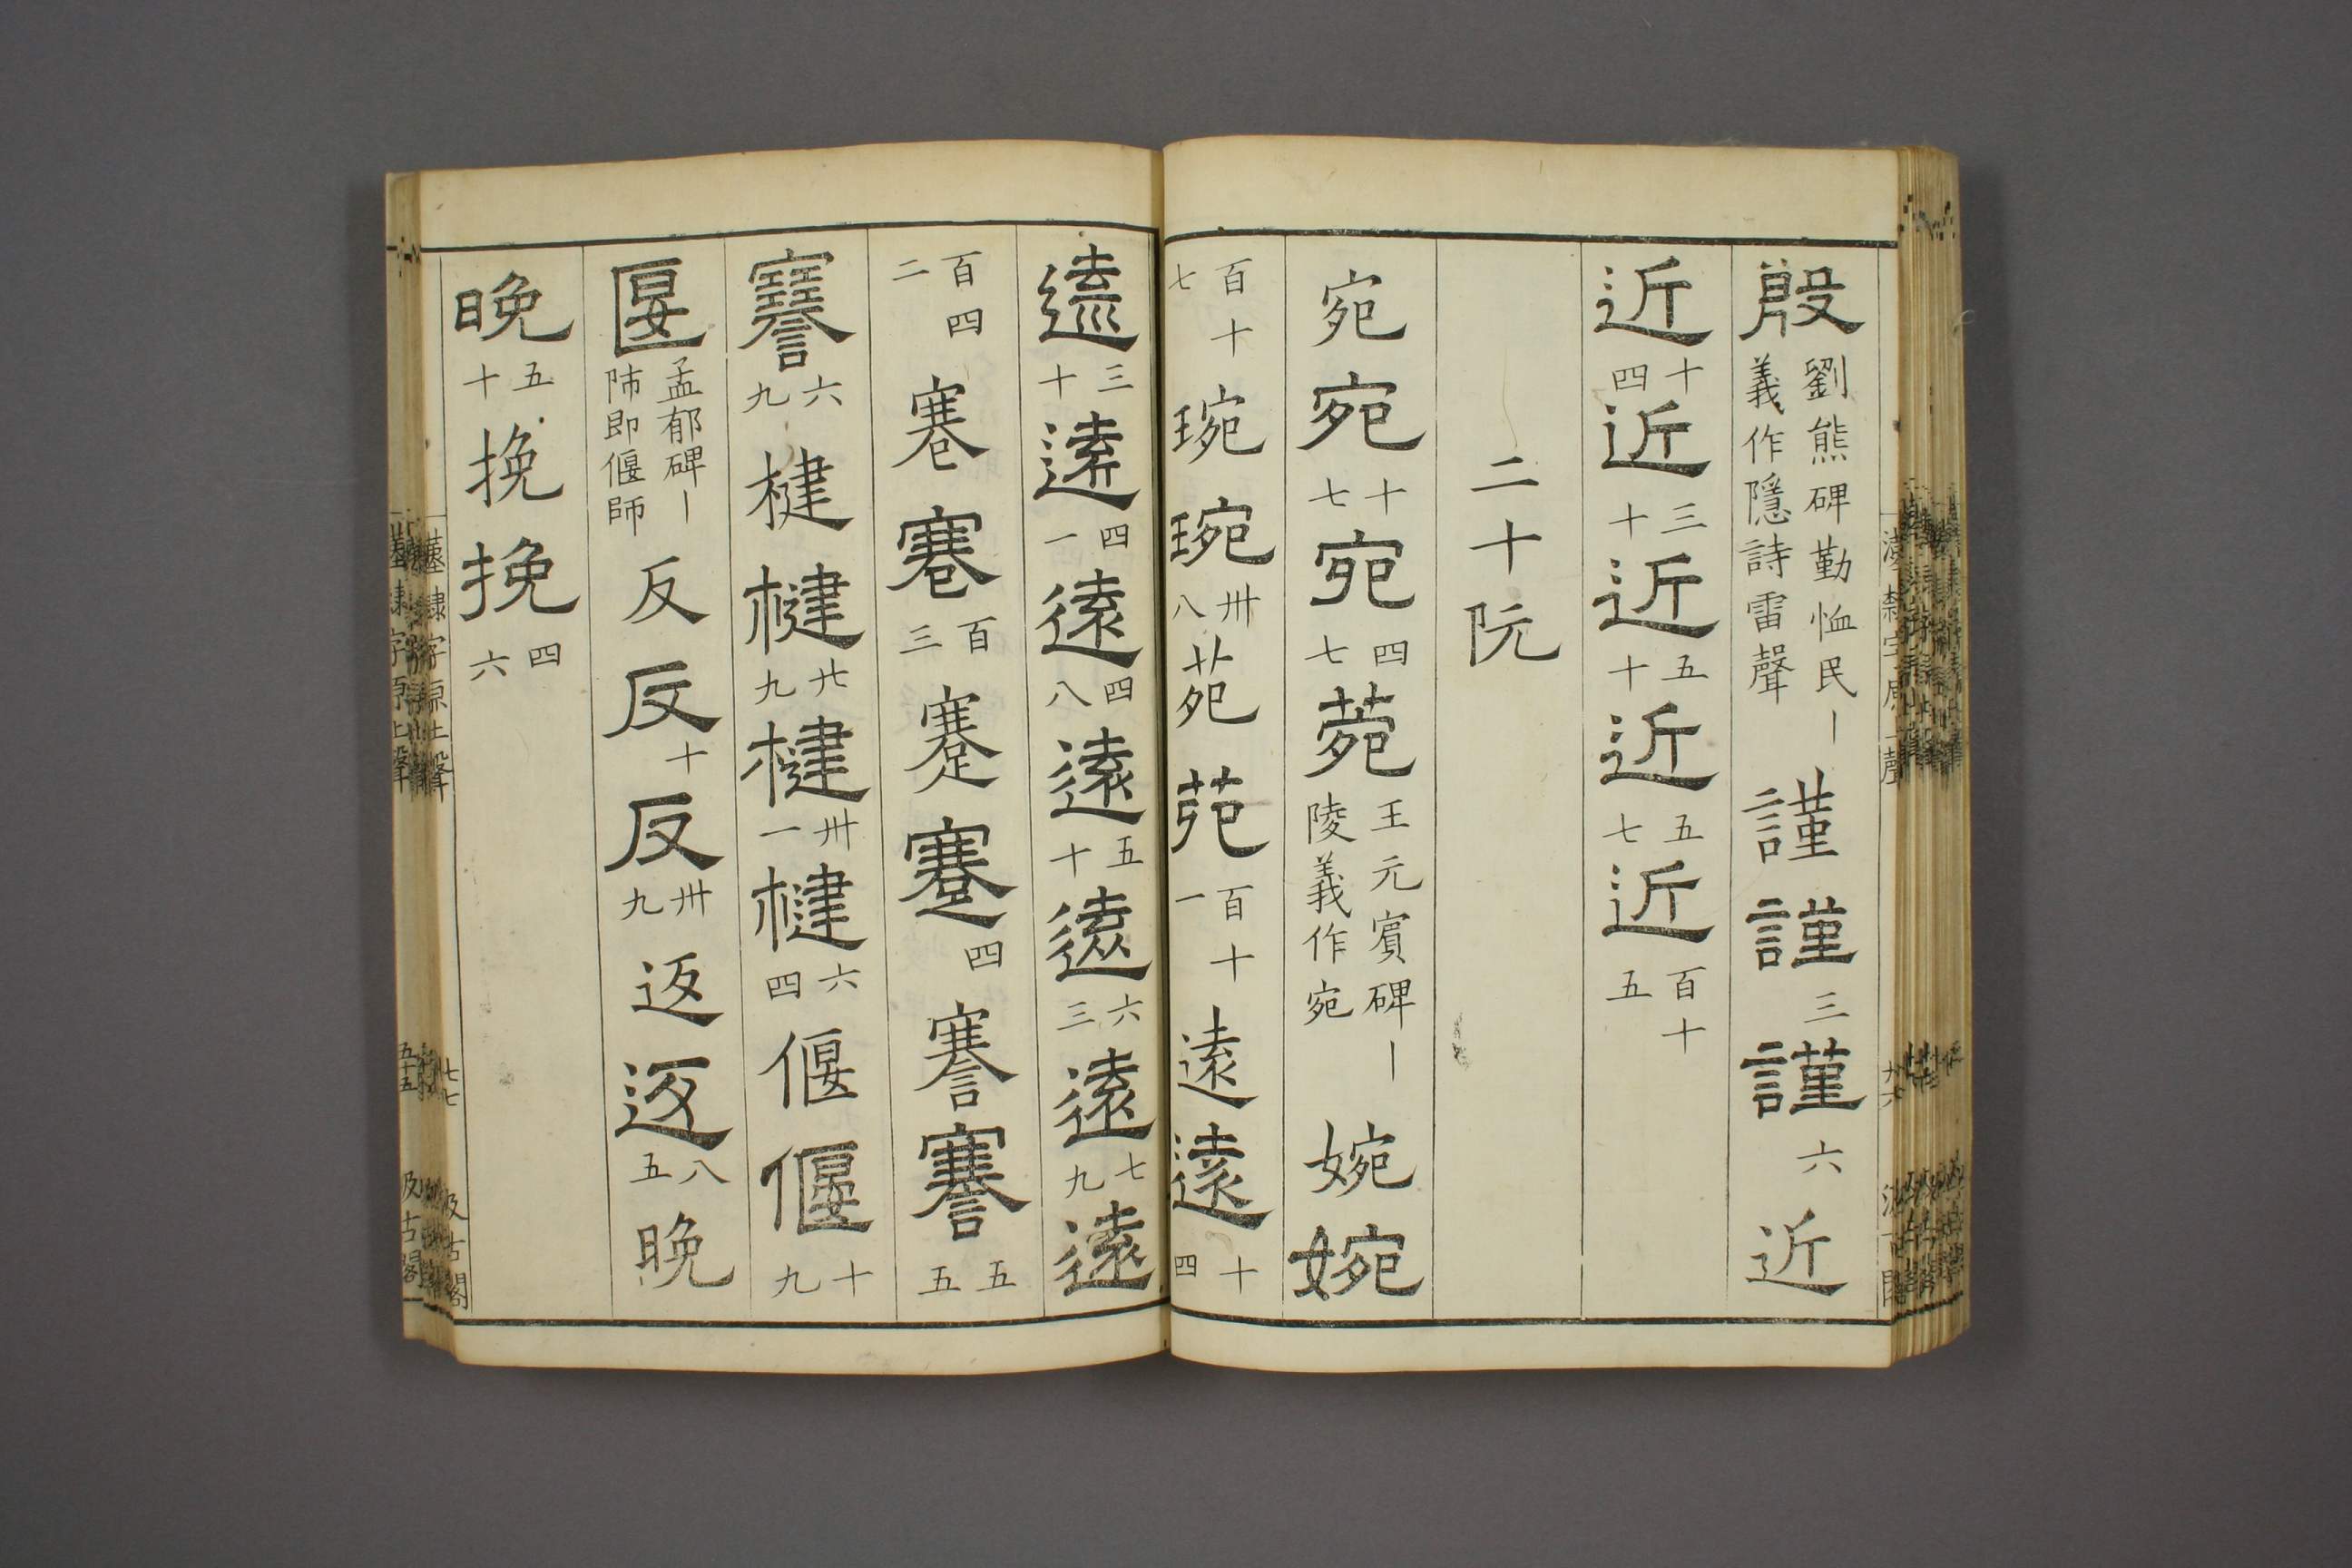 殷劉熊碑勤恤民丨義作隱詩雷聲謹謹三謹六近
近十四近三十近五十近五七近百十五
二十阮
宛宛十七宛四七菀王元賔碑丨陵義作宛婉婉
百十七琬琬卅八苑苑百十一遠遠十四
遠三十遠四一遠四八遠五十遠六三遠七九遠
百四二蹇蹇百三蹇蹇四謇謇五五
謇六九楗楗廿九楗卅一楗六四偃偃十九
匽孟郁碑丨師即偃師反反十反卅九返返八五晚
晚五十挽挽四六
漢隸字原上聲
七七
汲古閣